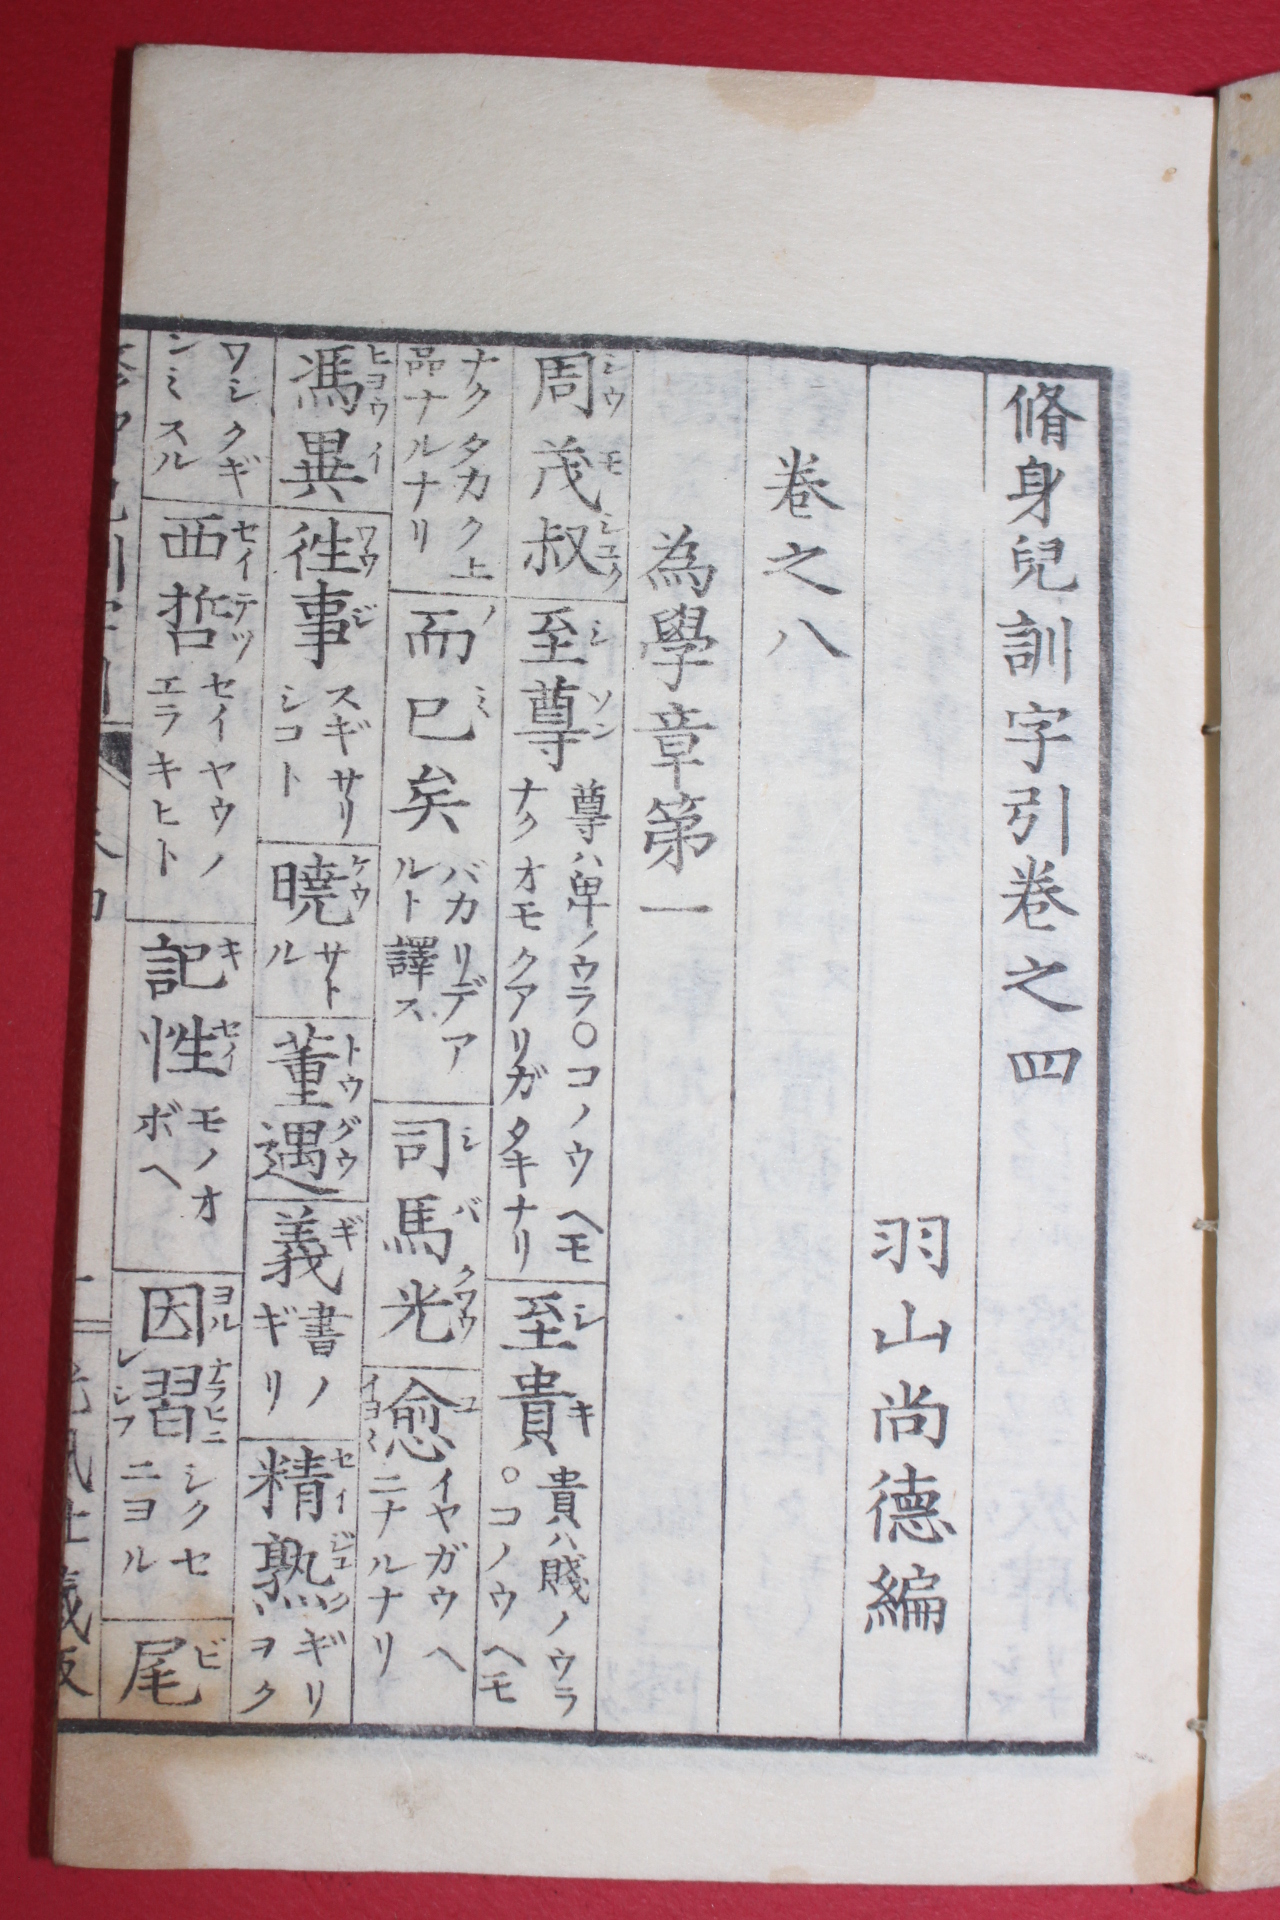 脩身兒訓字引卷之四
羽山尚德編
卷之八
為學章第一
周茂叔 シウモシユク
至尊 シソン 尊ハ卑ノウラ○コノウヘモナクオモクアリガタキナリ
至貴 シキ 貴ハ賤ノウラ○コノウヘモ
ナクタカク上品ナルナリ
而已矣 ノミ バカリデアルト譯ス
司馬光 シバクワウ
愈 ユ イヨ〱 イヤガウヘニナルナリ
馮異 ヒヨウイ
徃事 ワウジ スギサリシコト
曉 ケウ サトル
董遇 トウグウ
義 ギ 書ノギリ
精熟 セイジユク ギリヲク
ワシクギンミスル
西哲 セイテツ セイヤウノエラキヒト
記性 キセイ モノオボヘ
因習 ヨルナラヒニ レシフ シクセニヨル
尾 ビ